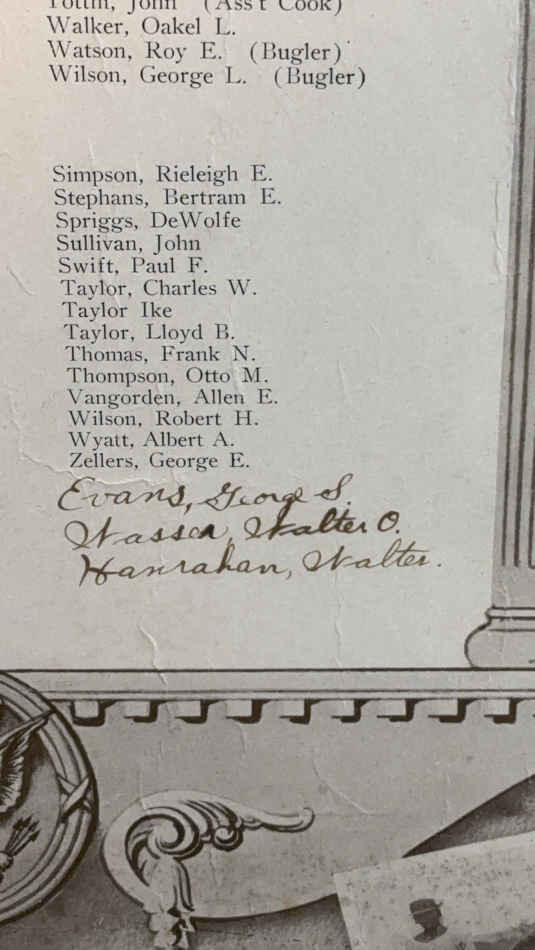 Tottin, John (Ass't Cook)
Walker, Oakel L.
Watson, Roy E. (Bugler)
Wilson, George L. (Bugler)
Simpson, Rieleigh E.
Stephans, Bertram E.
Spriggs, DeWolfe
Sullivan, John
Swift, Paul F.
Taylor, Charles W.
Taylor Ike
Taylor, Lloyd B.
Thomas, Frank N.
Thompson, Otto M.
Vangorden, Allen E.
Wilson, Robert H.
Wyatt, Albert A.
Zellers, George E.
Evans, George S.
Walter O.
Hanrahan, Walter.